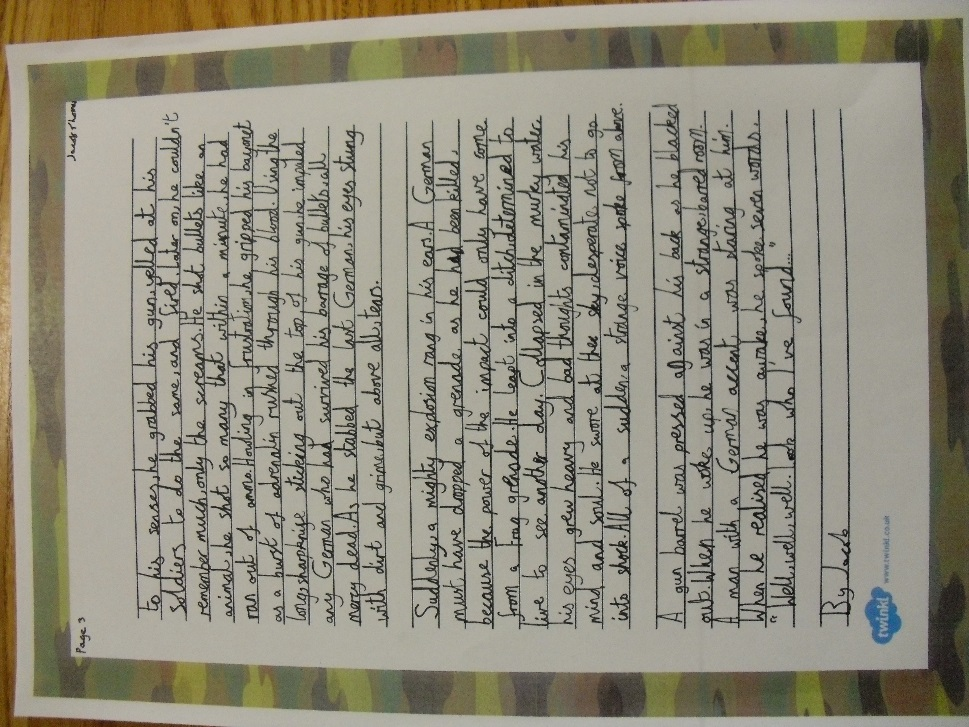 Page 3
to his senses, he grabbed his gun, yelled at his
soldiers to do the same, and fired. Later on, he couldn't
remember much, only the screams. He shot bullets like an
animal, he shot so many that within a minute, he had
ran out of ammo. Howling in frustration, he gripped his bayonet
as a burst of adrenalin rushed through his blood. Using the
long, sharp knife sticking out the top of his gun, he impaled
any German who had survived his barrage of bullets, all
mercy dead. As he stabbed the last German, his eyes stung
with dirt and grime, but above all, tears.
Suddenly, a mighty explosion rang in his ears. A German
must have dropped a grenade as he had been killed,
because the power of the impact could only have come
from a frag grenade. He leapt into a ditch, determined to
live to see another day. Collapsed in the murky water,
his eyes grew heavy and bad thoughts contaminated his
mind and soul. He swore at the sky, desperate not to go
into shock. All of a sudden, a strange voice spoke from above.
A gun barrel was pressed against his back as he blacked
out. When he woke up, he was in a strange, barred room.
A man with a German accent was staring at him.
When he realised he was awake, he spoke seven words.
"Well, well, well. Look who I've found..."
By Jacob
twinkl
www.twinkl.co.uk